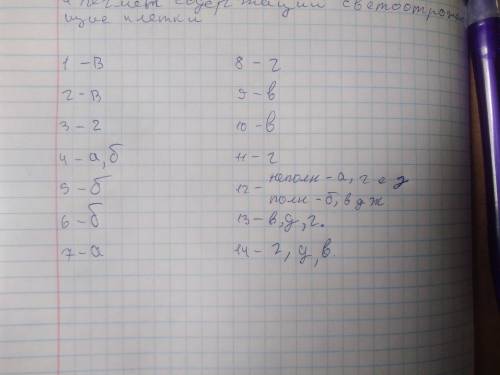 пегмет содержащий светоотража
щие клетки
1 - в
2 - в
3 - г
4 - а, б
5 - б
6 - б
7 - а
8 - г
9 - в
10 - в
11 - г
12 - неполн - а, г е з
полн - б, в д ж
13 - в, д, г.
14 - г, д, в.